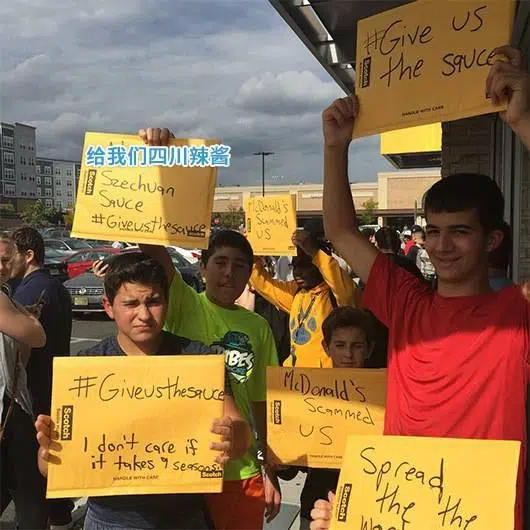 #Give us
the sauce
Scotch
HANDLE WITH CARE
给我们四川辣酱
Szechuan
Sauce
#Giveusthesauce
Scotch
McDonald's
Scammed
US
#Giveusthesauce
I don't care if
it takes 9 seasons
Scotch
HANDLE WITH CARE
Scotch
McDonald's
Scammed
US
Scotch
Spread
the
the
Scotch